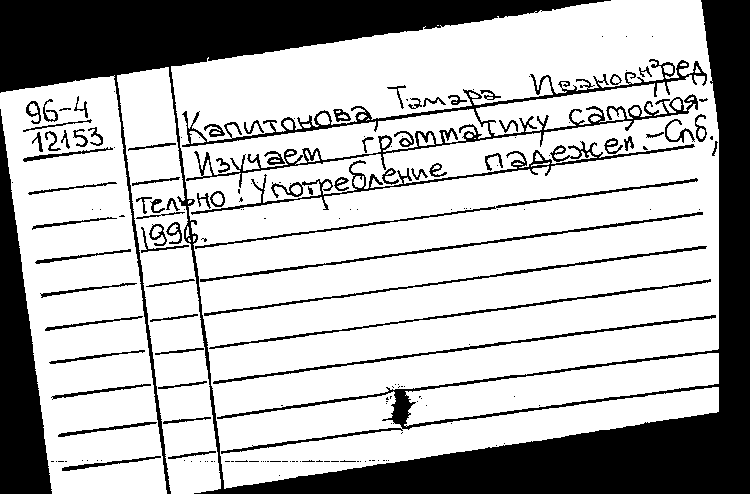 96-4
12153
Капитонова, Тамара Ивановн² ред.
Изучаем грамматику самостоя-
тельно : Употребление падежей. - Спб.,
1996.